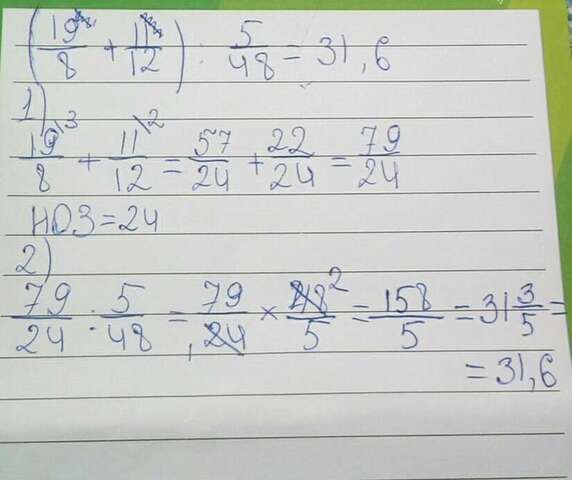 (19/8 + 11/12) : 5/48 = 31,6
1)
19\3/8 + 11\2/12 = 57/24 + 22/24 = 79/24
НОЗ = 24
2)
79/24 : 5/48 = 79/24 × 48 2/5 = 158/5 = 31 3/5 =
= 31,6